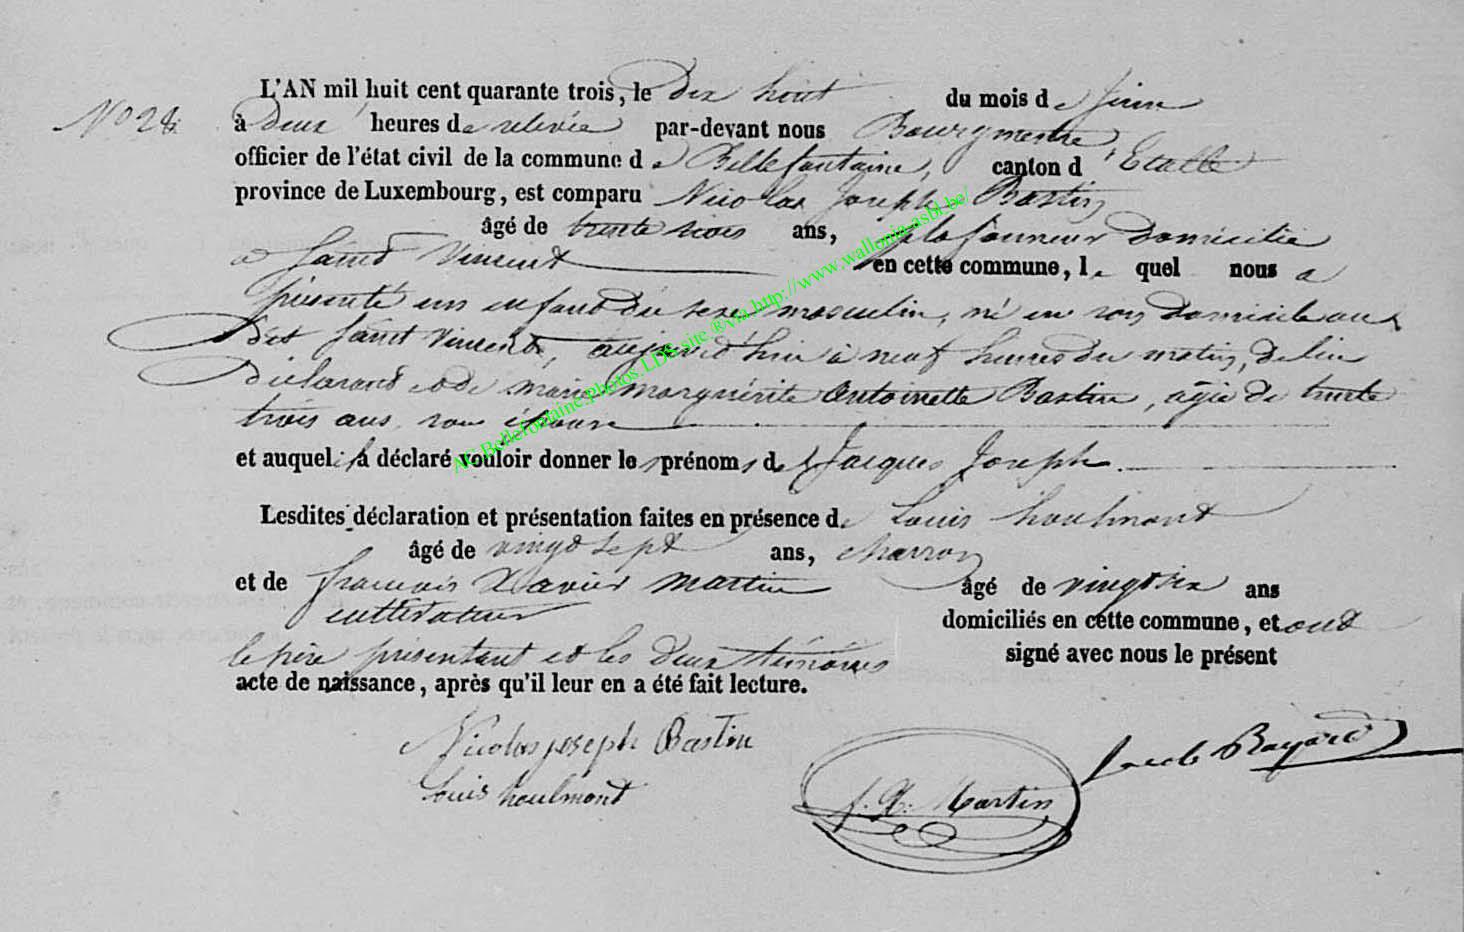 L'AN mil huit cent quarante trois, le dix huit du mois de juin
N° 28
à deux heures de relevée par-devant nous Bourgmestre
officier de l'état civil de la commune de Bellefontaine, canton d'Etalle
province de Luxembourg, est comparu Nicolas Joseph Bastin
âgé de trente trois ans, plafonneur domicilié
à Saint Vincent en cette commune, le quel nous a
présenté un enfant du sexe masculin, né en son domicile au
dit Saint Vincent, aujourd'hui à neuf heures du matin, de lui
déclarant et de marie Marguérite Antoinette Bastin, agée de trente
trois ans, son épouse
et auquel il a déclaré vouloir donner les prénoms de Jacques Joseph
Lesdites déclaration et présentation faites en présence de Louis houlmont
âgé de vingt sept ans, charron
et de francois Xavier martin âgé de vingt six ans
cultivateur domiciliés en cette commune, et ont
le père présentant et les deux témoins signé avec nous le présent
acte de naissance, après qu'il leur en a été fait lecture.
Nicolas joseph Bastin
Louis houlmont
f. X. Martin
Bayard
AC Bellefontaine.photos.LDS.site ®via http://www.wallonia-asbl.be/